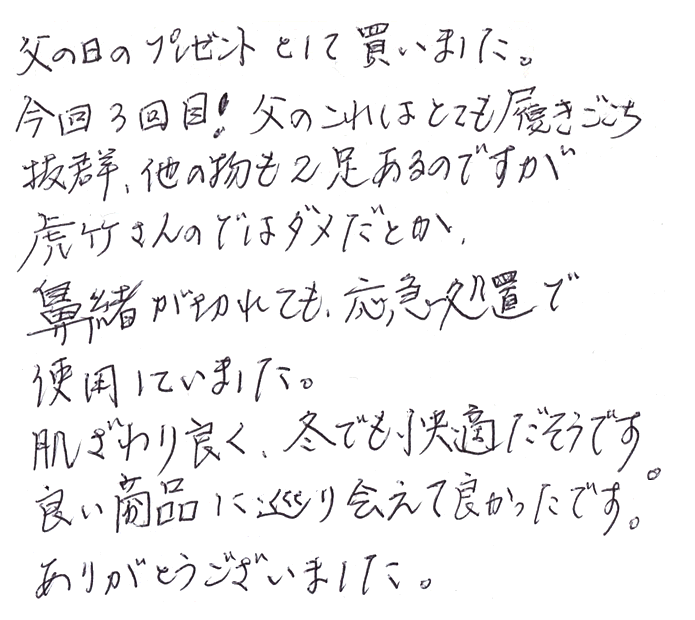 父の日のプレゼントとして買いました。
今回3回目! 父のこれはとても履きごこち
抜群、他の物も2足あるのですが
虎竹さんのではダメだとか、
鼻緒が切れても、応急処置で
使用していました。
肌ざわり良く、冬でも快適だそうです。
良い商品に巡り会えて良かったです。
ありがとうございました。